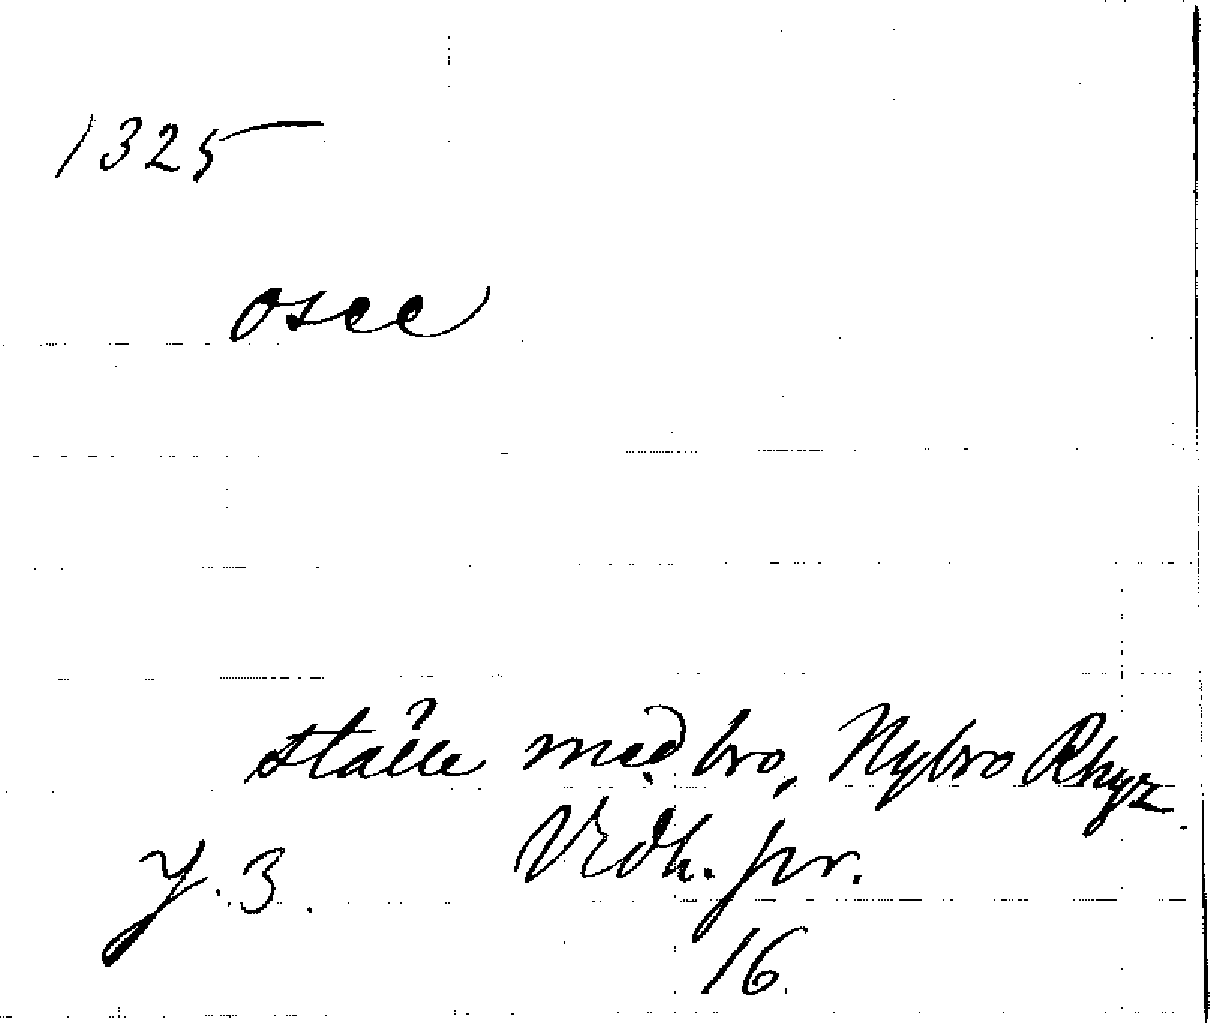 1325
osce
ställe med bro, Nybro Rhyz
Vedh. pr.
J. 3.
16.